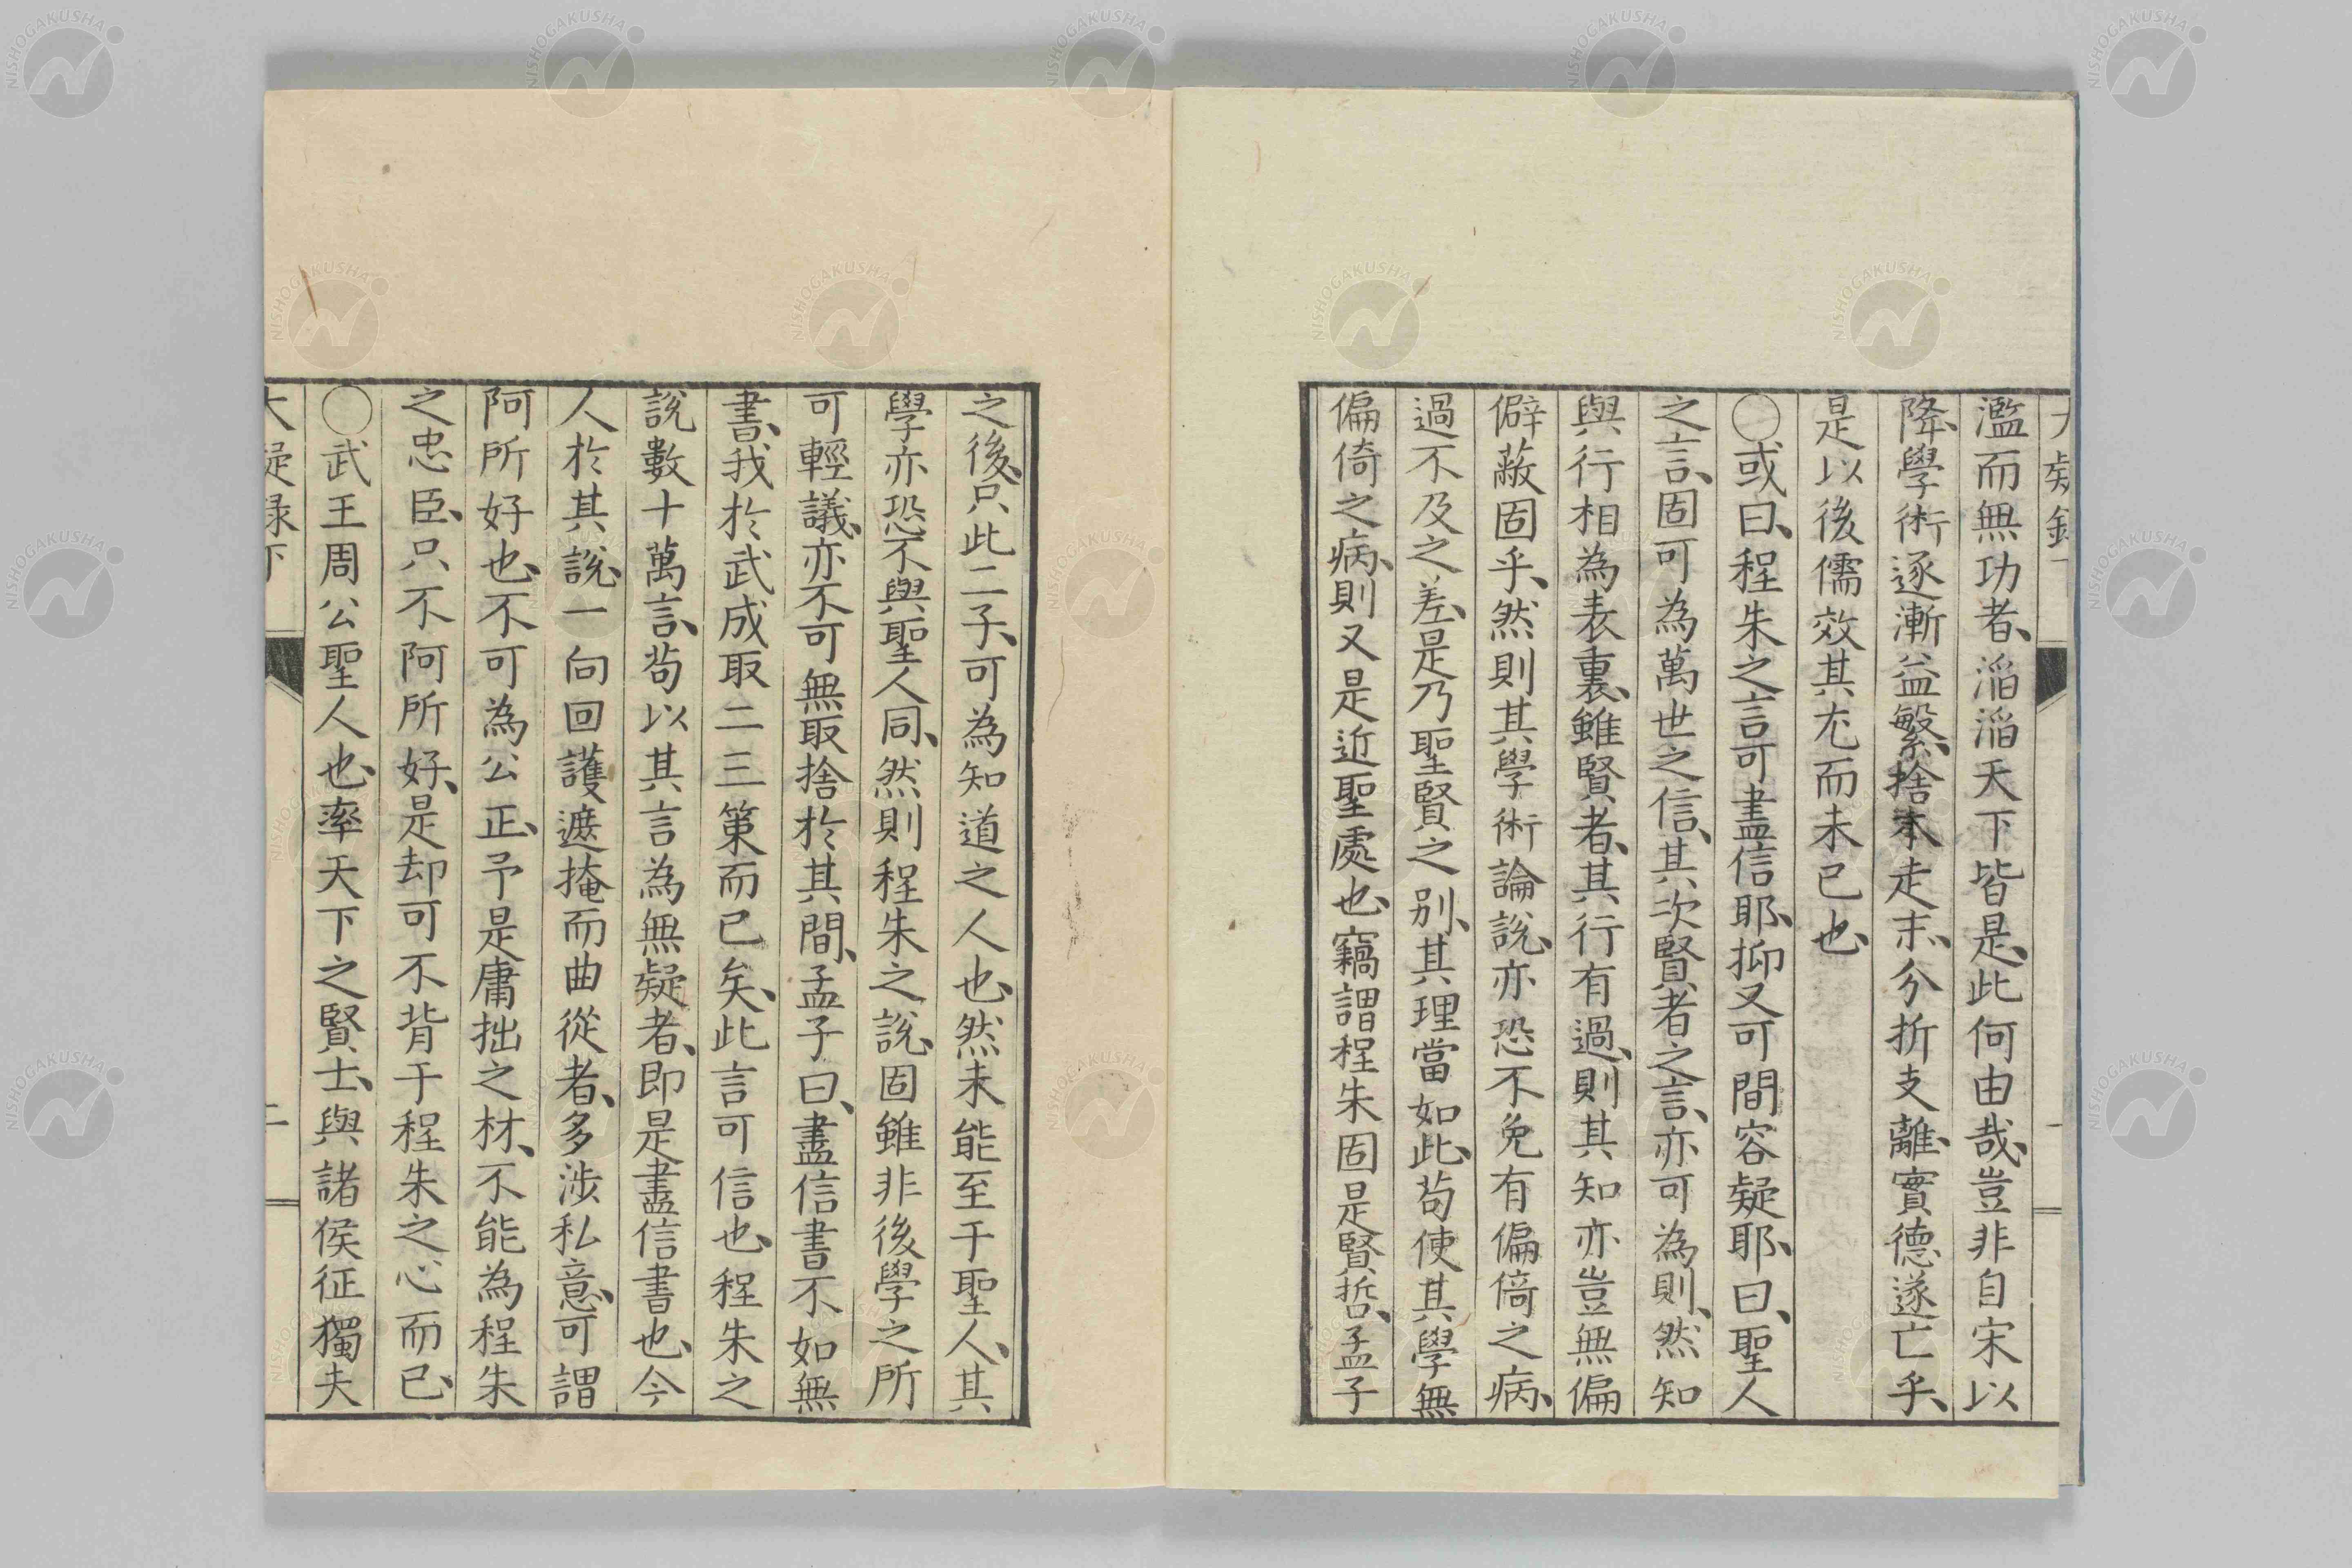 濫而無功者、滔滔天下皆是、此何由哉、豈非自宋以
降、學術逐漸益繁、捨本走末、分折支離、實德遂亡乎、
是以後儒效其尤而未已也、
〇或曰、程朱之言可盡信耶、抑又可間容疑耶、曰、聖人
之言、固可為萬世之信、其次賢者之言、亦可為則、然知
與行相為表裏、雖賢者、其行有過、則其知亦豈無偏
僻蔽固乎、然則其學術論說、亦恐不免有偏倚之病、
過不及之差、是乃聖賢之別、其理當如此、苟使其學無
偏倚之病、則又是近聖處也、竊謂程朱固是賢哲、孟子
之後、只此二子、可為知道之人也、然未能至于聖人、其
學亦恐不與聖人同、然則程朱之說、固雖非後學之所
可輕議、亦不可無取捨於其間、孟子曰、盡信書不如無
書、我於武成取二三策而已矣、此言可信也、程朱之
說數十萬言、苟以其言為無疑者、即是盡信書也、今
人於其說、一向回護遮掩而曲從者、多涉私意、可謂
阿所好也、不可為公正、予是庸拙之材、不能為程朱
之忠臣、只不阿所好、是却可不背于程朱之心而已、
〇武王周公聖人也、率天下之賢士、與諸侯征獨夫
大疑録下 二